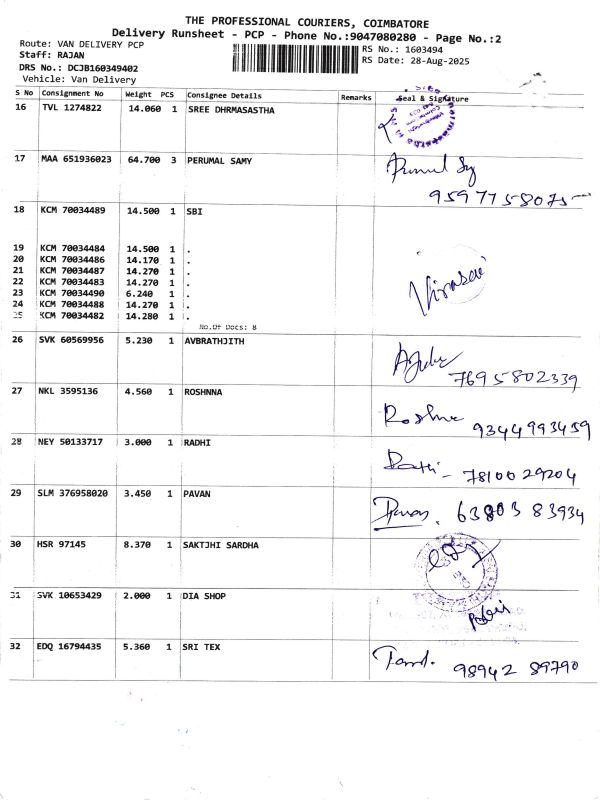 THE PROFESSIONAL COURIERS, COIMBATORE
Delivery Runsheet - PCP - Phone No.:9047080280 - Page No.:2
Route: VAN DELIVERY PCP
Staff: RAJAN
DRS No.: DCJB160349402
Vehicle: Van Delivery
RS No.: 1603494
RS Date: 28-Aug-2025
S No Consignment No Weight PCS Consignee Details Remarks Seal & Signature
16 TVL 1274822 14.060 1 SREE DHRMASASTHA
17 MAA 651936023 64.700 3 PERUMAL SAMY
9597758075
18 KCM 70034489 14.500 1 SBI
19 KCM 70034484 14.500 1 .
20 KCM 70034486 14.170 1 .
21 KCM 70034487 14.270 1 .
22 KCM 70034483 14.270 1 .
23 KCM 70034490 6.240 1 .
24 KCM 70034488 14.270 1 .
25 KCM 70034482 14.280 1 .
No.Of Docs: 8
26 SVK 60569956 5.230 1 AVBRATHJITH
7695802339
27 NKL 3595136 4.560 1 ROSHNNA
9344993459
28 NEY 50133717 3.000 1 RADHI
7810029204
29 SLM 376958020 3.450 1 PAVAN
Pavan. 63803 83934
30 HSR 97145 8.370 1 SAKTJHI SARDHA
31 SVK 10653429 2.000 1 DIA SHOP
32 EDQ 16794435 5.360 1 SRI TEX
98942 89790